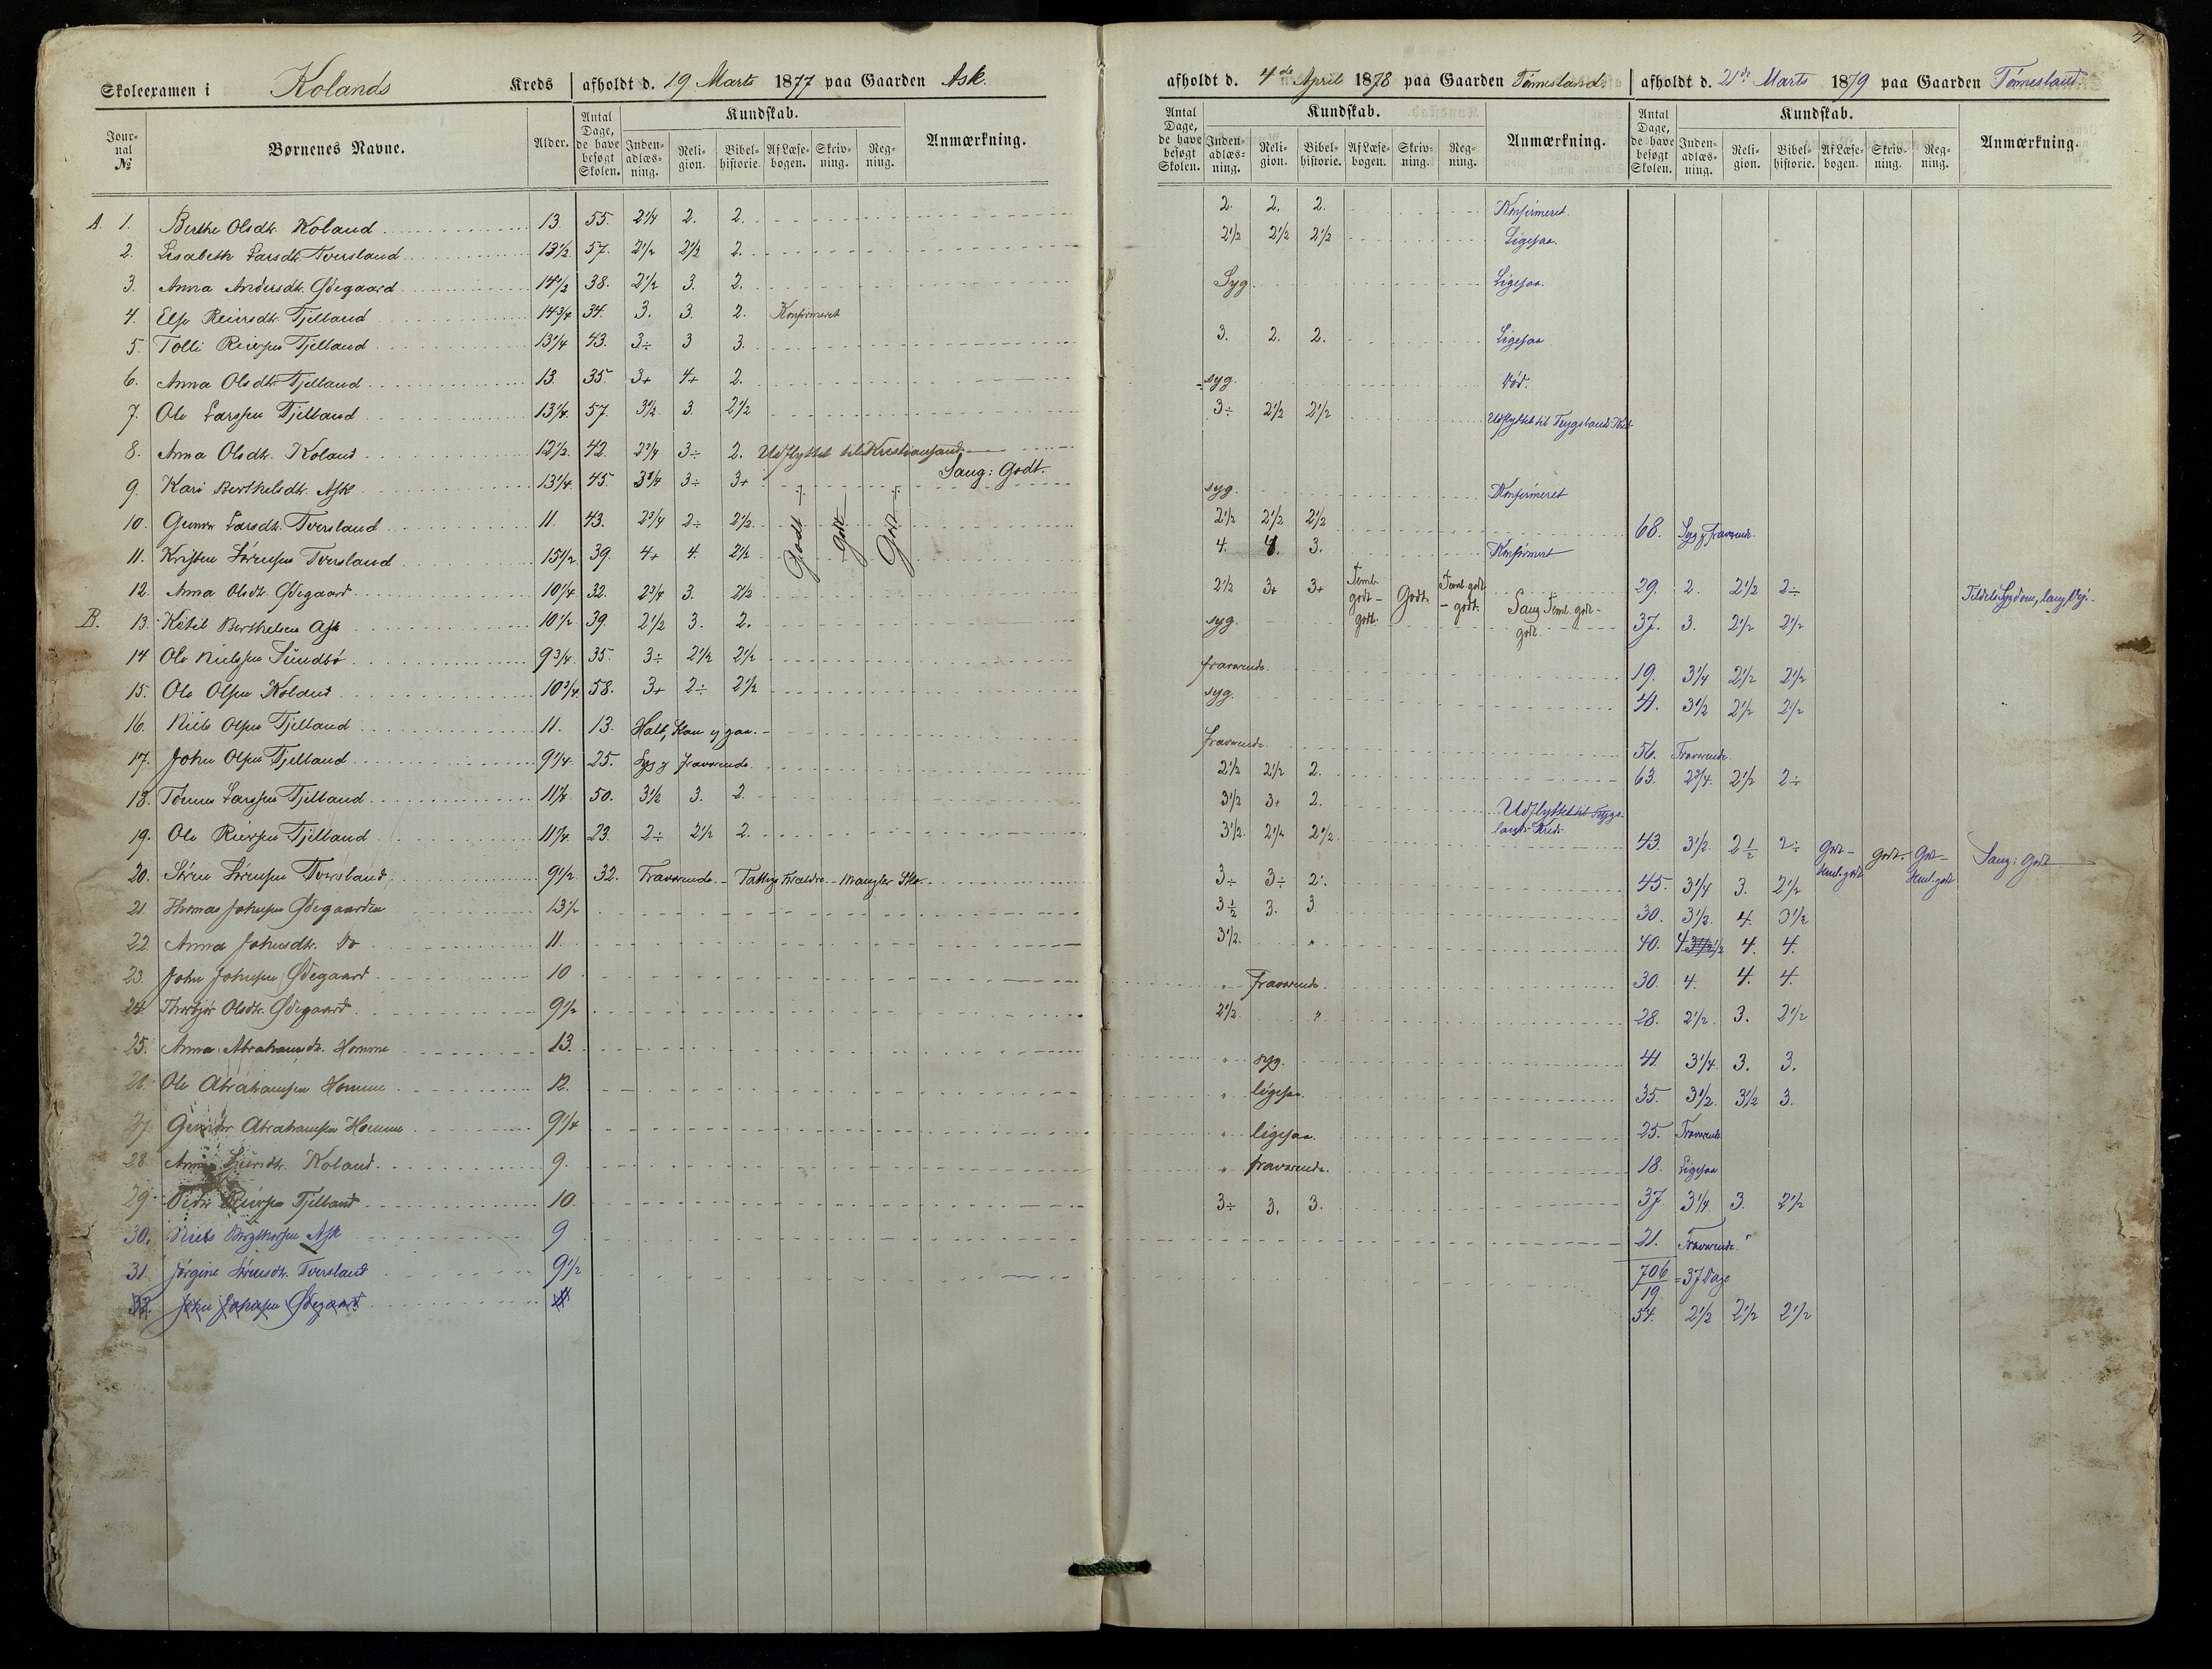 Skoleexamen i Kolands Kreds afholdt d. 19 Marts 1877 paa Gaarden Ask.
Jour-nal № Børnenes Navne. Alder. Antal Dage, de have besøgt Skolen. Kundskab. Inden-adlæs-ning. Reli-gion. Bibel-historie. Af Læse-bogen. Skriv-ning. Reg-ning. Anmærkning.
A. 1. Berthe Olsdtr. Koland 13. 55. 2 1/4 2. 2.
2. Lisabeth Larsdtr. Tversland 13 1/2 57. 2 1/2 2 1/2 2.
3. Anna Andersdtr. Ødegaard 14 1/2 38. 2 1/2 3. 2.
4. Else Reiersdtr. Tjelland 14 3/4 34. 3. 3. 2. Konfirmeret
5. Tolli Reiersen Tjelland 13 1/4 43. 3÷ 3 3.
6. Anna Olsdtr. Tjelland 13. 35. 3+ 4+ 2.
7. Ole Larssen Tjelland 13 1/4 57. 3 1/2 3. 2 1/2
8. Anna Olsdtr. Koland 12 1/2 42. 2 3/4 3÷ 2. Udflyttet til Kristiansand
9. Kari Berthelsdtr. Ask 13 1/4 45. 3 1/4 3÷ 3+ Sang: Godt.
10. Gunvor Larsdtr. Tversland 11. 43. 2 3/4 2÷ 2 1/2 Godt Godt Godt
11. Kristen Sørensen Tversland 15 1/2 39. 4+ 4. 2 1/2
12. Anna Olsdtr. Ødegaard 10 1/4 32. 2 3/4 3. 2 1/2
B. 13. Ketil Berthelsen Ask 10 1/2 39. 2 1/2 3. 2.
14 Ole Nielssen Sundbø 9 3/4 35. 3÷ 2 1/2 2 1/2
15. Ole Olsen Koland 10 3/4 58. 3+ 2÷ 2 1/2
16. Niels Olsen Tjelland 11. 13. Halt, kan ej gaa.
17. John Olsen Tjelland 9 1/4 25. Syg og fraværende
18. Tønnes Larssen Tjelland 11 1/4 50. 3 1/2 3. 2.
19. Ole Reiersen Tjelland 11 1/4 23. 2÷ 2 1/2 2.
20. Søren Sørensen Tversland 9 1/2 32. Fraværende - Fattige Forældre. - Mangler Sko.
21. Thomas Johnsen Ødegaarden 13 1/2
22. Anna Johnsdtr. Do 11.
23. John Johnsen Ødegaard 10
24. Thorbjør Olsdtr. Ødegaard 9 1/2
25. Anna Abrahamsdtr. Homme 13.
26. Ole Abrahamsen Homme 12.
27. Abrahamsen Homme 9 1/4
28. Anna Koland 9.
29. Reiersen Tjelland 10.
30. Niels Ask 9
31. Jørgine Sørensdtr. Tversland 9 1/2
32. John Johnsen Ødegaard
afholdt d. 4de April 1878 paa Gaarden Tønnesland.
Antal Dage, de have besøgt Skolen. Kundskab. Inden-adlæs-ning. Reli-gion. Bibel-historie. Af Læse-bogen. Skriv-ning. Reg-ning. Anmærkning.
2. 2. 2. Konfirmeret.
2 1/2 2 1/2 2 1/2 Ligesaa.
Syg. Ligesaa.
3. 2. 2. Ligesaa
syg. Død.
3÷ 2 1/2 2 1/2 Udflyttet til Kreds
syg. Konfirmeret
2 1/2 2 1/2 2 1/2
4. 4. 3. Konfirmeret
2 1/2 3+ 3+ Teml. godt - godt. Godt. Teml. godt - godt. Sang Teml. godt - godt.
syg.
fraværende.
syg.
fraværende.
2 1/2 2 1/2 2.
3 1/2 3+ 2. Udflyttet til
3 1/2. 2 1/2 2 1/2. Kreds
3÷ 3÷ 2.
3 1/2 3. 3
3 1/2. "
" fraværende.
2 1/2 "
" syg.
" ligesaa.
" ligesaa.
" fraværende.
3÷ 3. 3.
afholdt d. 21de Marts 1879 paa Gaarden Tønnesland.
Antal Dage, de have besøgt Skolen. Kundskab. Inden-adlæs-ning. Reli-gion. Bibel-historie. Af Læse-bogen. Skriv-ning. Reg-ning. Anmærkning.
68. Syg og fraværende.
29. 2. 2 1/2 2÷ Sygdom, lang Vej.
37. 3. 2 1/2 2 1/2
19. 3 1/4 2 1/2 2 1/2
41. 3 1/2 2 1/2 2 1/2
56. Fraværende.
63. 2 3/4. 2 1/2 2÷
43. 3 1/2. 2 1/2 2÷ Godt - teml. godt godt. Godt - teml. godt Sang: godt
45. 3 1/4 3. 2 1/2
30. 3 1/2. 4. 3 1/2
40. 4 4. 4.
30. 4. 4. 4.
28. 2 1/2. 3. 2 1/2
41 3 1/4. 3. 3.
35. 3 1/2. 3 1/2 3.
25. Fraværende
18. Ligesaa
37 3 1/4. 3. 2 1/2
21. Fraværende.
706/19 = 37 Dage
54. 2 1/2 2 1/2 2 1/2